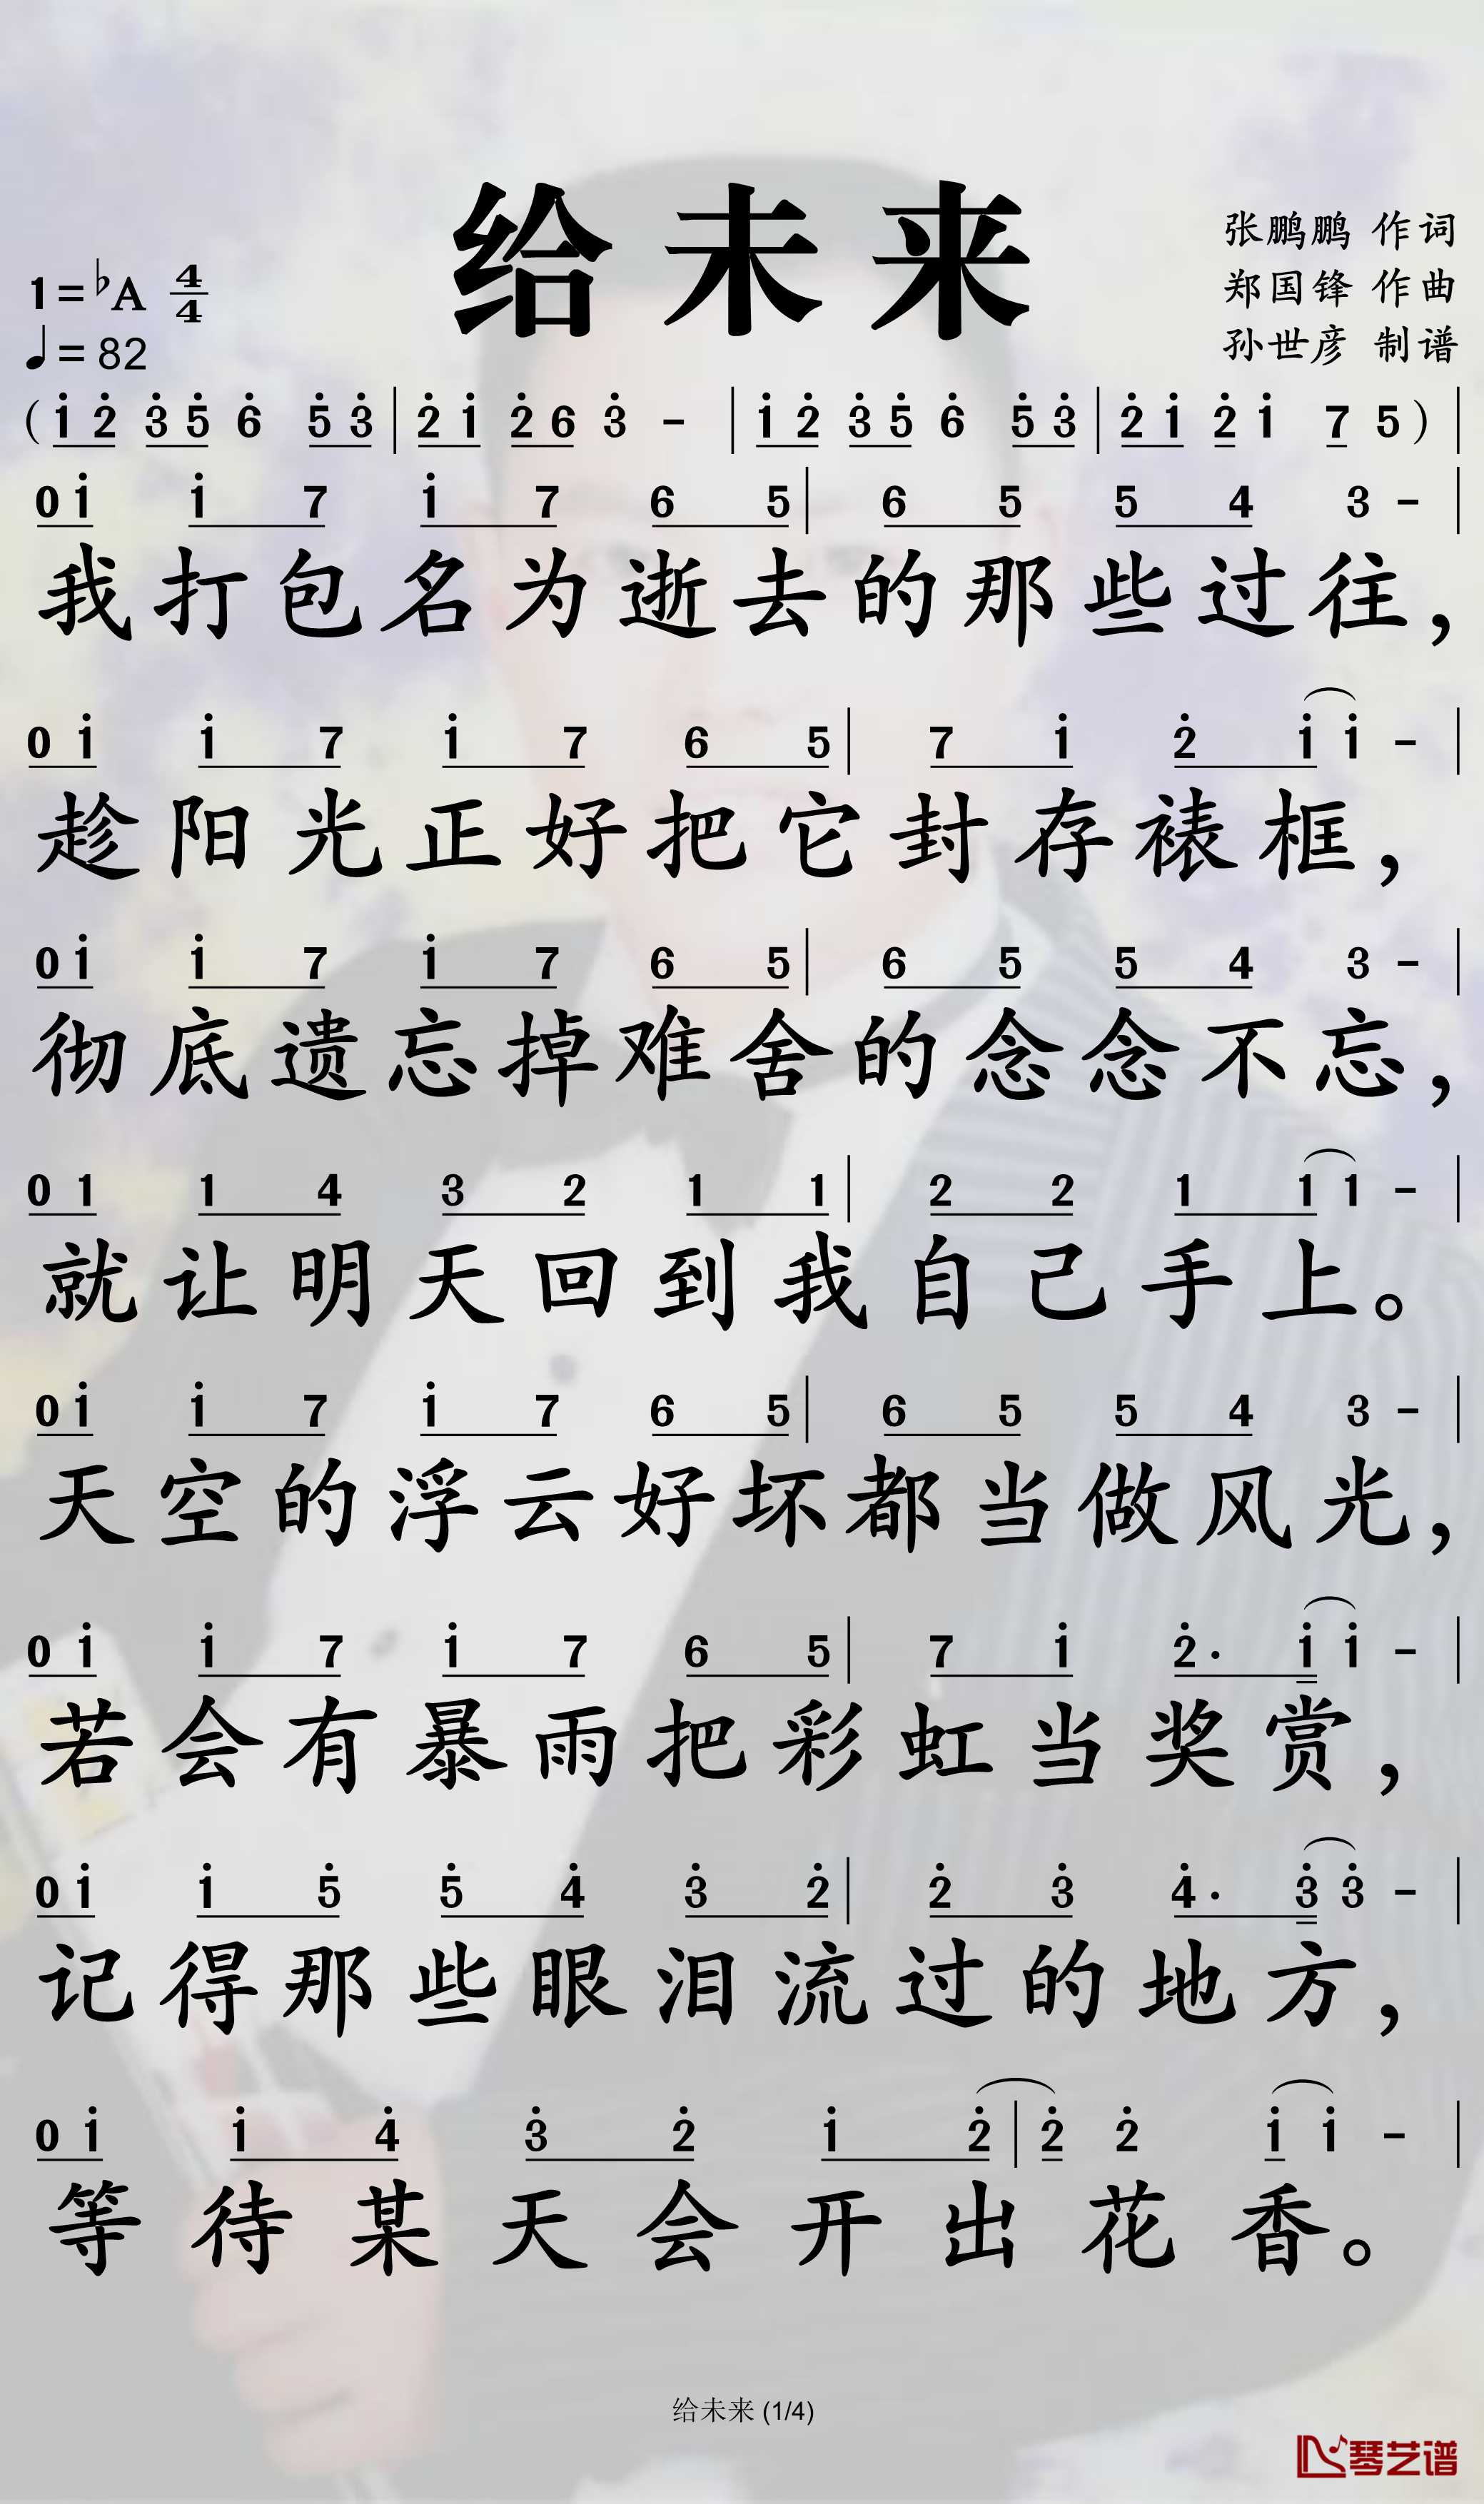 给未来
张鹏鹏 作词
郑国锋 作曲
孙世彦 制谱
1=♭A 4/4
♩=82
(i̇ 2̇ 3̇ 5̇ 6̇ 5̇ 3̇ | 2̇ i̇ 2̇ 6 3̇ - | i̇ 2̇ 3̇ 5̇ 6̇ 5̇ 3̇ | 2̇ i̇ 2̇ i̇ 7 5) |
0 i̇ i̇ 7 i̇ 7 6 5 | 6 5 5 4 3 - |
我打包名为逝去的那些过往，
0 i̇ i̇ 7 i̇ 7 6 5 | 7 i̇ 2̇ i̇ i̇ - |
趁阳光正好把它封存裱框，
0 i̇ i̇ 7 i̇ 7 6 5 | 6 5 5 4 3 - |
彻底遗忘掉难舍的念念不忘，
0 1 1 4 3 2 1 1 | 2 2 1 1 1 - |
就让明天回到我自己手上。
0 i̇ i̇ 7 i̇ 7 6 5 | 6 5 5 4 3 - |
天空的浮云好坏都当做风光，
0 i̇ i̇ 7 i̇ 7 6 5 | 7 i̇ 2̇· i̇ i̇ - |
若会有暴雨把彩虹当奖赏，
0 i̇ i̇ 5̇ 5̇ 4̇ 3̇ 2̇ | 2̇ 3̇ 4̇· 3̇ 3̇ - |
记得那些眼泪流过的地方，
0 i̇ i̇ 4̇ 3̇ 2̇ i̇ 2̇ | 2̇ 2̇ i̇ i̇ - |
等待某天会开出花香。
给未来 (1/4)
琴艺谱